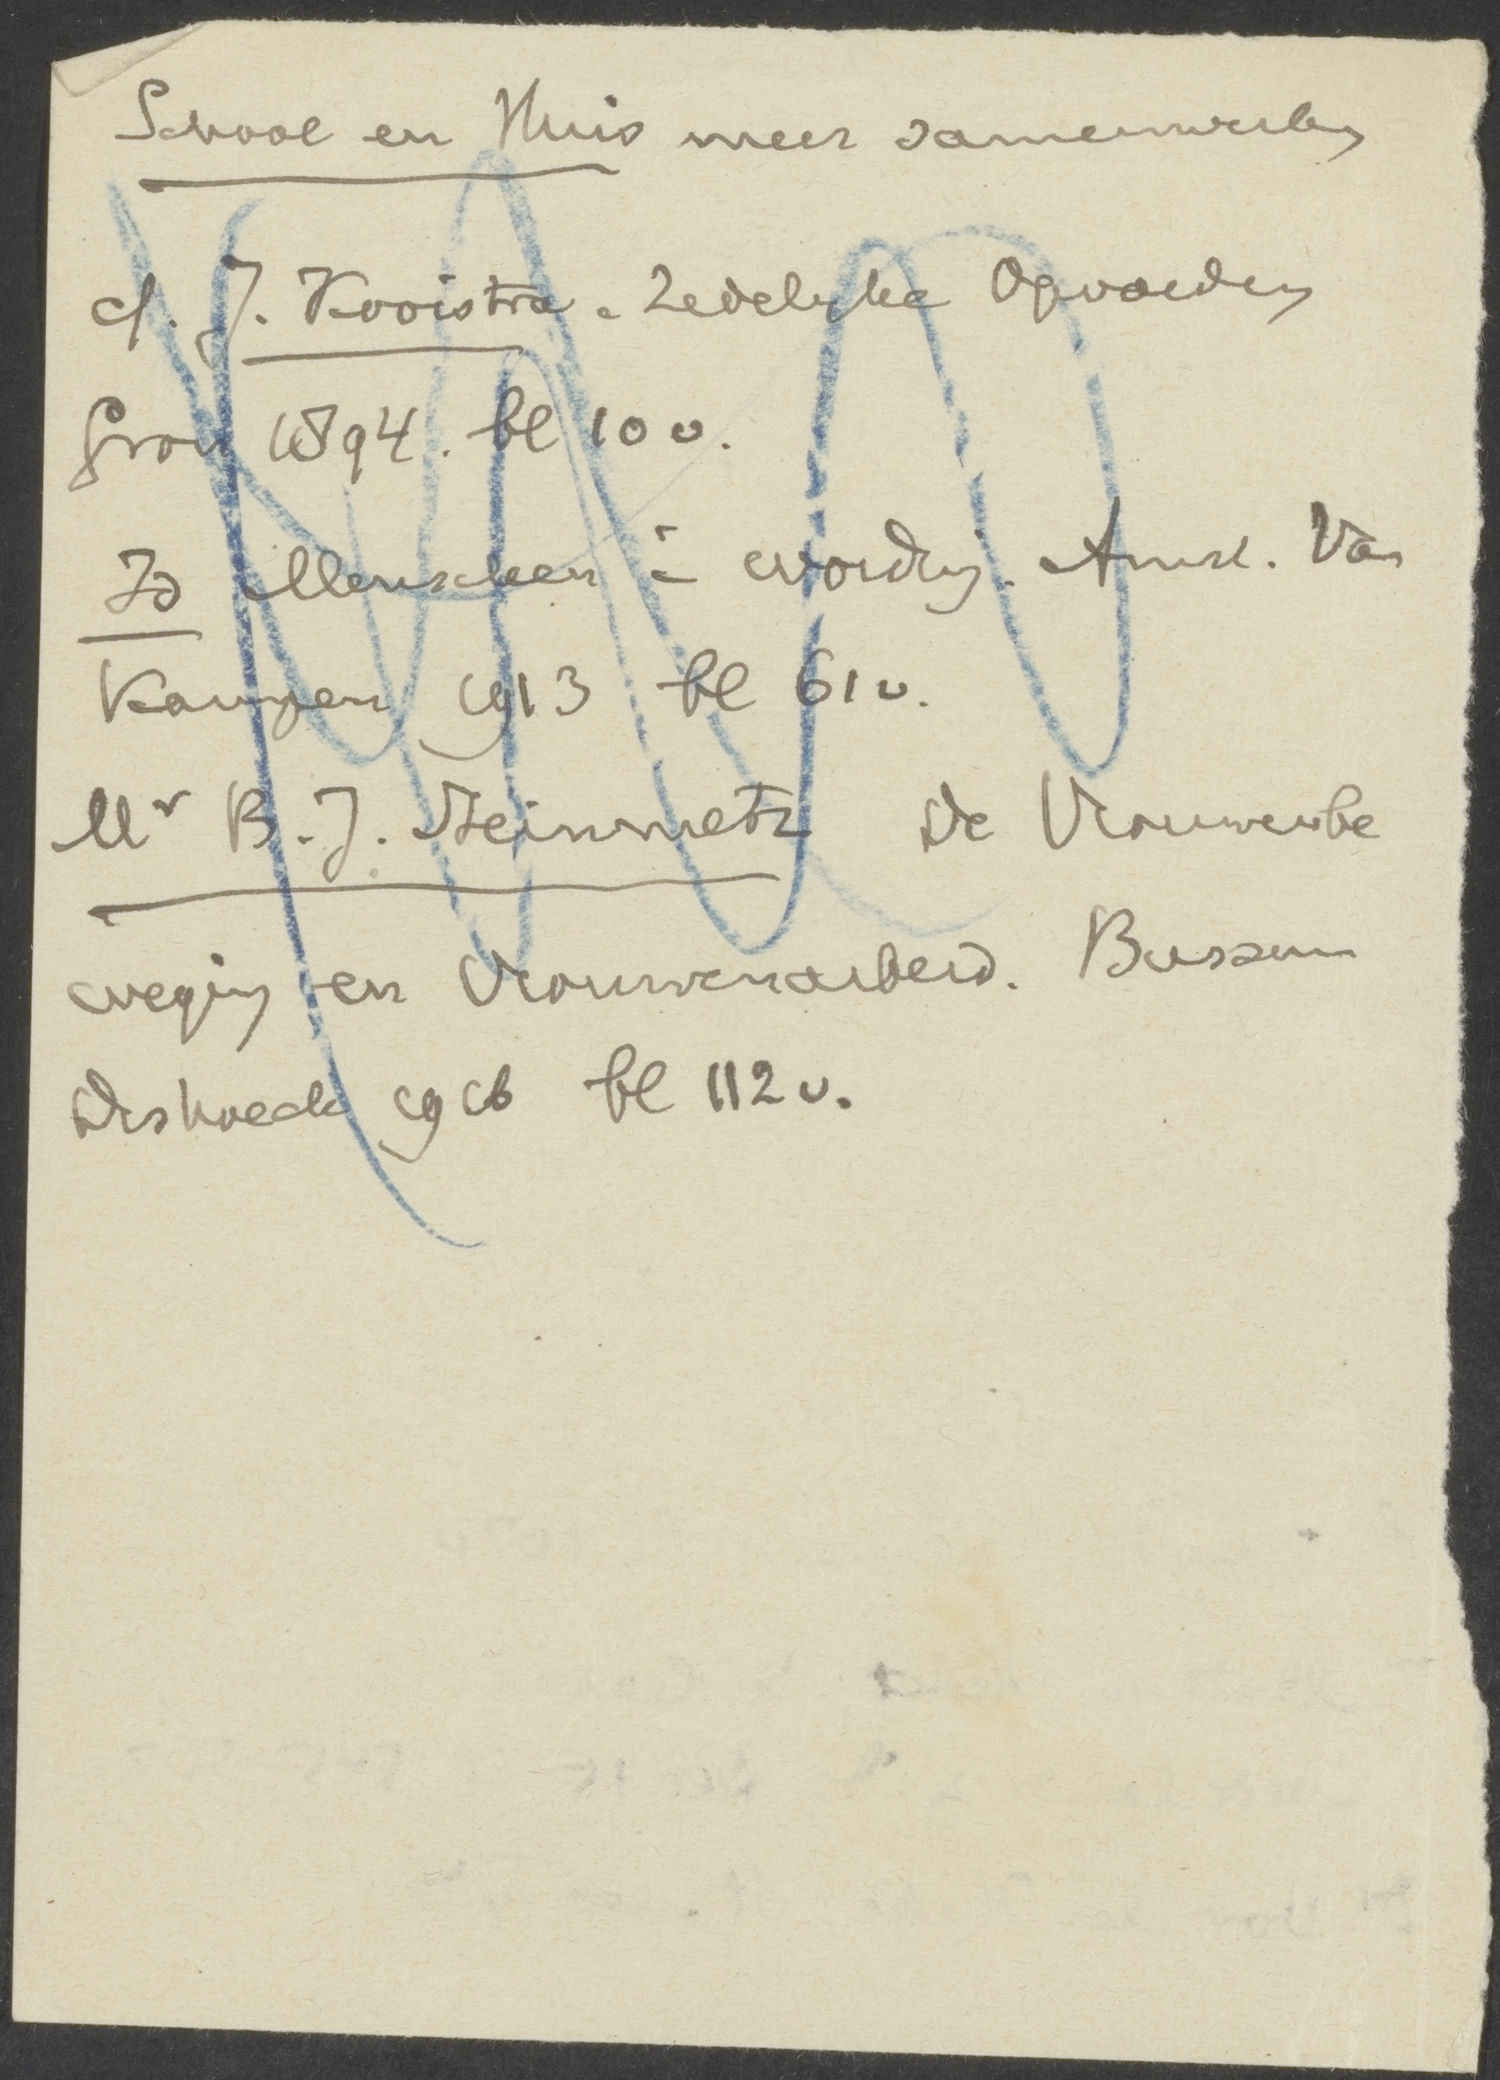 School en Huis meer samenwerking
cf. J. Kooistra. Zedelyke Opvoeding
Gron 1894. bl 100.
Id Menschen i wording. Amst. Van
Kampen 1913 bl 61v.
Mr B. J. Steinmetz De Vrouwenbe
weging en Vrouwenarbeid. Bussum
Dishoeck 1916 bl 112v.